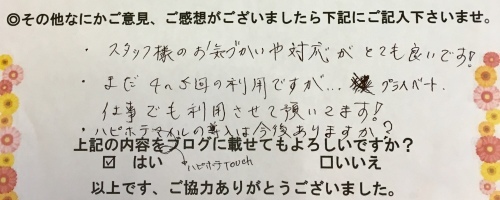 ◎その他なにかご意見、ご感想がございましたら下記にご記入下さいませ。
・スタッフ様のお気づかいや対応がとても良いです!
・まだ4〜5回の利用ですが… プライベート.
仕事でも利用させて頂いてます!
・ハピホテマイルの導入は今後ありますか?
上記の内容をブログに載せてもよろしいですか?
☑ はい ハピホテTouch □いいえ
以上です、ご協力ありがとうございました。